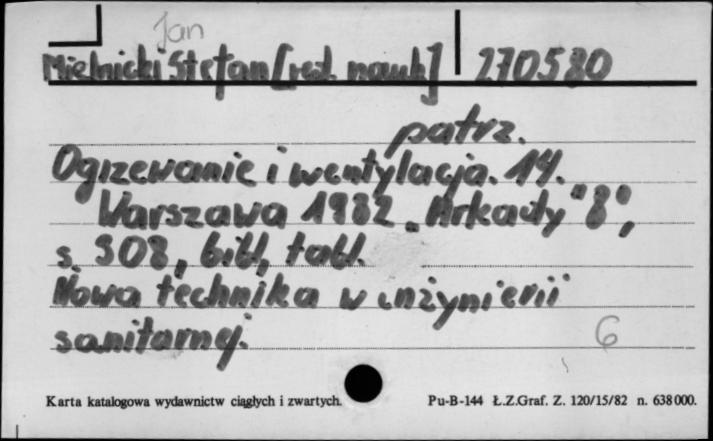 Jan
Mielnicki Stefan [red. nauk] 270580
patrz.
Ogrzewanie i wentylacja. 14.
Warszawa 1982 "Arkady" 8°,
s. 308, bibl, tabl.
Nowa technika w inżynierii
sanitarnej.
6
Karta katalogowa wydawnictw ciągłych i zwartych. Pu-B-144 Ł.Z.Graf. Z. 120/15/82 n. 638000.